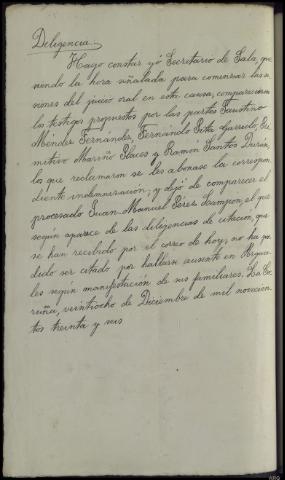 Diligencia.
Hago constar yó Secretario de Sala, que
siendo la hora señalada para comenzar las se
siones del juicio oral en esta causa, comparecieron
los testigos propuestos por las partes Faustino
Méndez Fernández, Fernándo Pita Garrido, Pri
mitivo Mariño Places y Ramón Santos Durán,
los que reclamaron se les abonase la correspon
diente indemnización; y dejó de comparecer el
procesado Juan Manuel Pérez el que
según aparece de las diligencias de citación, que
se han recibido por el correo de hoy, no ha po
dido ser citado por hallarse ausente en
les según manifestación de sus familiares. La Co
ruña, veintiocho de Diciembre de mil novecien
tos treinta y seis